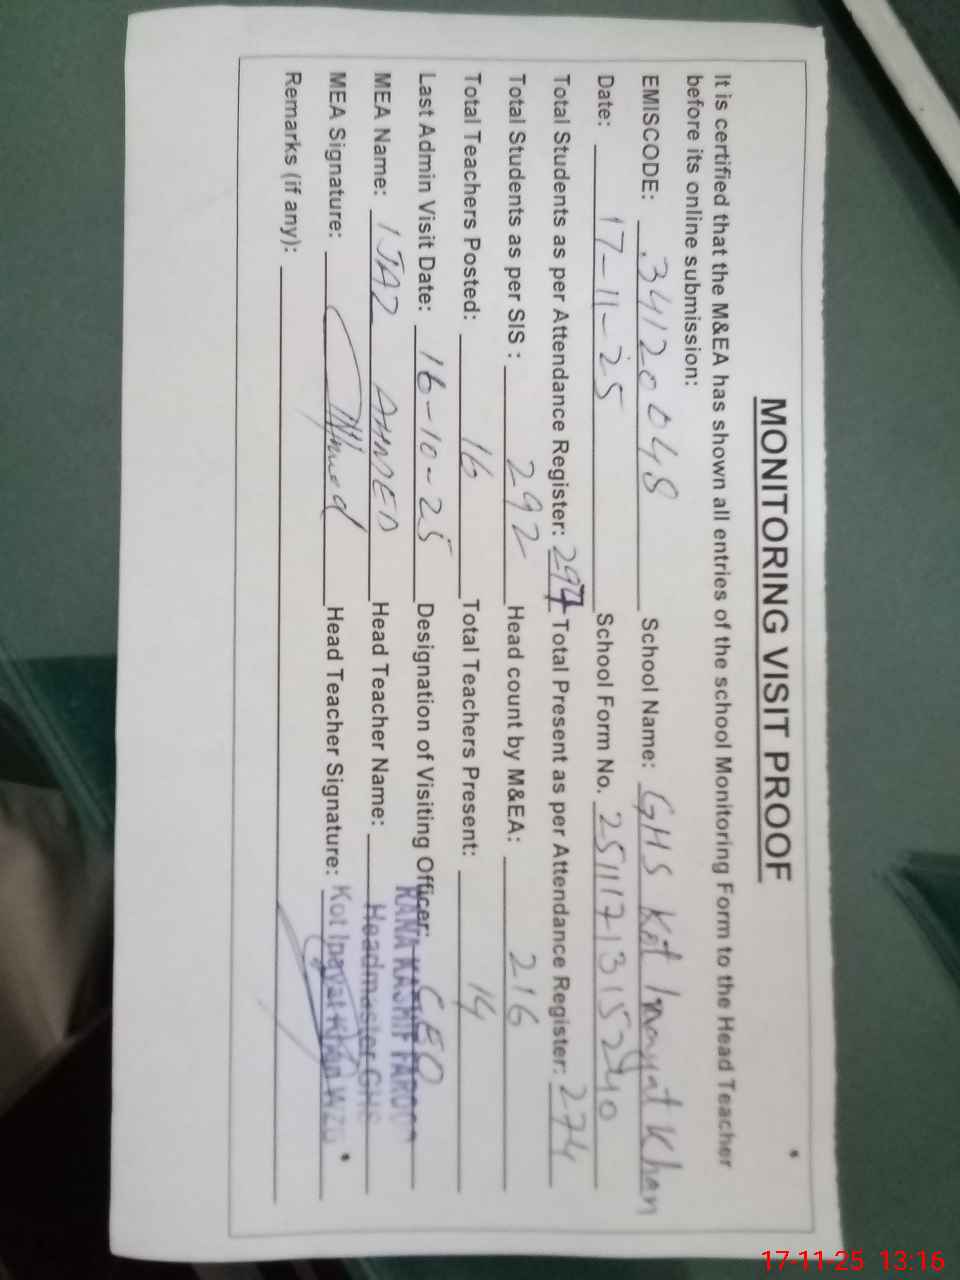 MONITORING VISIT PROOF
It is certified that the M&EA has shown all entries of the school Monitoring Form to the Head Teacher
before its online submission:
EMISCODE: 34120048 School Name: GHS Kot Inayat Khan
Date: 17-11-25 School Form No. 2511171315240
Total Students as per Attendance Register: 297 Total Present as per Attendance Register: 274
Total Students as per SIS : 292 Head count by M&EA: 216
Total Teachers Posted: 16 Total Teachers Present: 14
Last Admin Visit Date: 16-10-25 Designation of Visiting Officer: CEO
MEA Name: IJAZ AHMED Head Teacher Name: RANA KASHIF FAROOQ
Headmaster GHS
MEA Signature: Ahmed Head Teacher Signature: Kot Inayat Khan WZD
Remarks (if any):
17-11-25 13:16